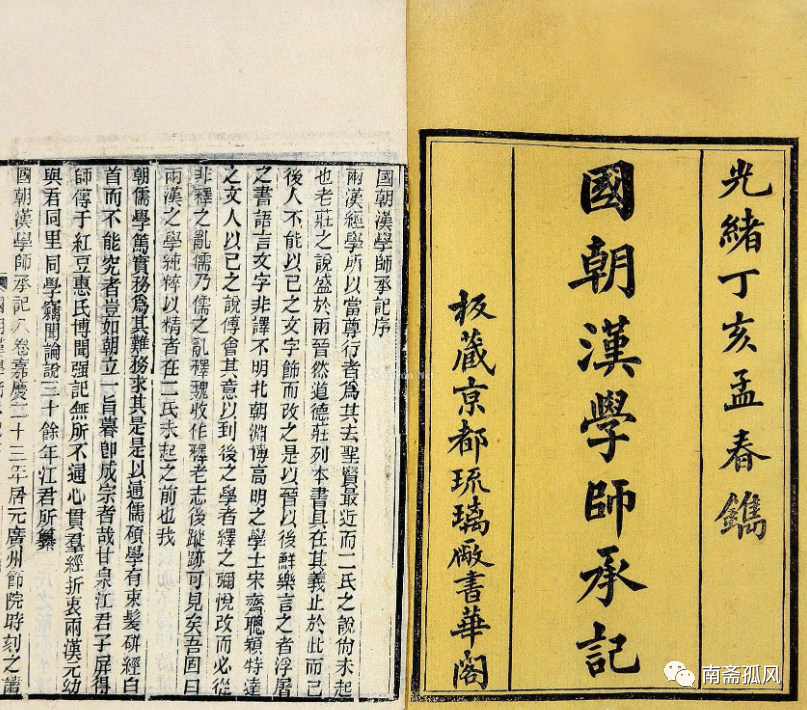 光緒丁亥孟春鐫
國朝漢學師承記
板藏京都琉璃廠書華閣
國朝漢學師承記序
兩漢經學所以當尊行者爲其去聖賢最近而二氏之說尙未起
也老莊之說盛於兩晉然道德莊列本書具在其義止於此而已
後人不能以己之文字飾而改之是以晉以後鮮樂言之者浮屠
之書語言文字非譯不明北朝淵博高明之學士宋齊聰穎特達
之文人以己之說傅會其意以到後之學者繹之彌悅改而必從
非釋之亂儒乃儒之亂釋魏收作釋老志後蹤跡可見矣吾固曰
兩漢之學純粹以精者在二氏未起之前也我
朝儒學篤實務爲其難務求其是是以通儒碩學有束髮硏經白
首而不能究者豈如朝立一旨暮卽成宗者哉甘泉江君子屏得
師傳于紅豆惠氏博聞強記無所不通心貫羣經折衷兩漢元幼
與君同里同學竊聞論說三十餘年江君所纂
國朝漢學師承記八卷嘉慶二十三年居元廣州節院時刻之讀
南斋孤风